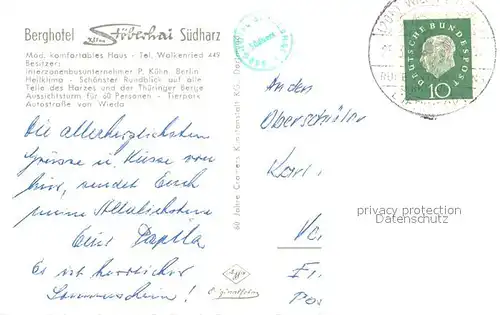 Berghotel Stöberhai Südharz
Mod. komfortables Haus - Tel. Walkenried 449
Besitzer:
Interzonenbusunternehmer P. Kühn Berlin
Heilklima - Schönster Rundblick auf alle
Teile des Harzes und der Thüringer Berge
Aussichtsturm für 60 Personen - Tierpark
Autostraße von Wieda
Die allerherzlichsten
Grüsse u. Küsse von
hier, sendet Euch
meine Allerliebsten
Euer
Es ist herrlicher
Sonnenschein!
60 Jahre Cramers Kunstanstalt KG. Dortmund
Agfa
Originalfoto
DEUTSCHE BUNDESPOST
10
An den
Oberschüler
Karl
privacy protection
Datenschutz